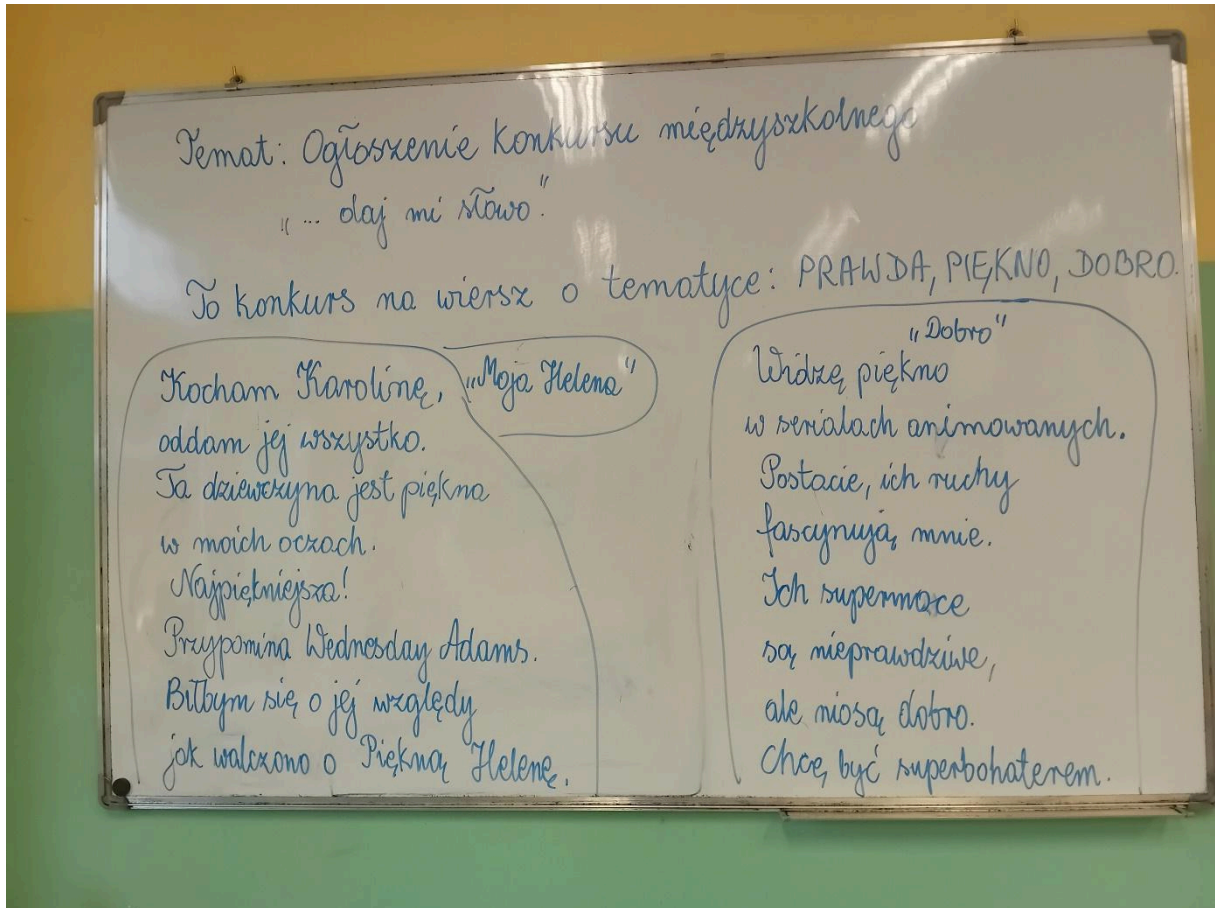 Temat: Ogłoszenie konkursu międzyszkolnego
„... daj mi słowo".
To konkurs na wiersz o tematyce: PRAWDA, PIĘKNO, DOBRO.
„Moja Helena"
Kocham Karolinę,
oddam jej wszystko.
Ta dziewczyna jest piękna
w moich oczach.
Najpiękniejsza!
Przypomina Wednesday Adams.
Biłbym się o jej względy
jak walczono o Piękną Helenę.
„Dobro"
Widzę piękno
w serialach animowanych.
Postacie, ich ruchy
fascynują mnie.
Ich supermoce
są nieprawdziwe,
ale niosą dobro.
Chcę być superbohaterem.